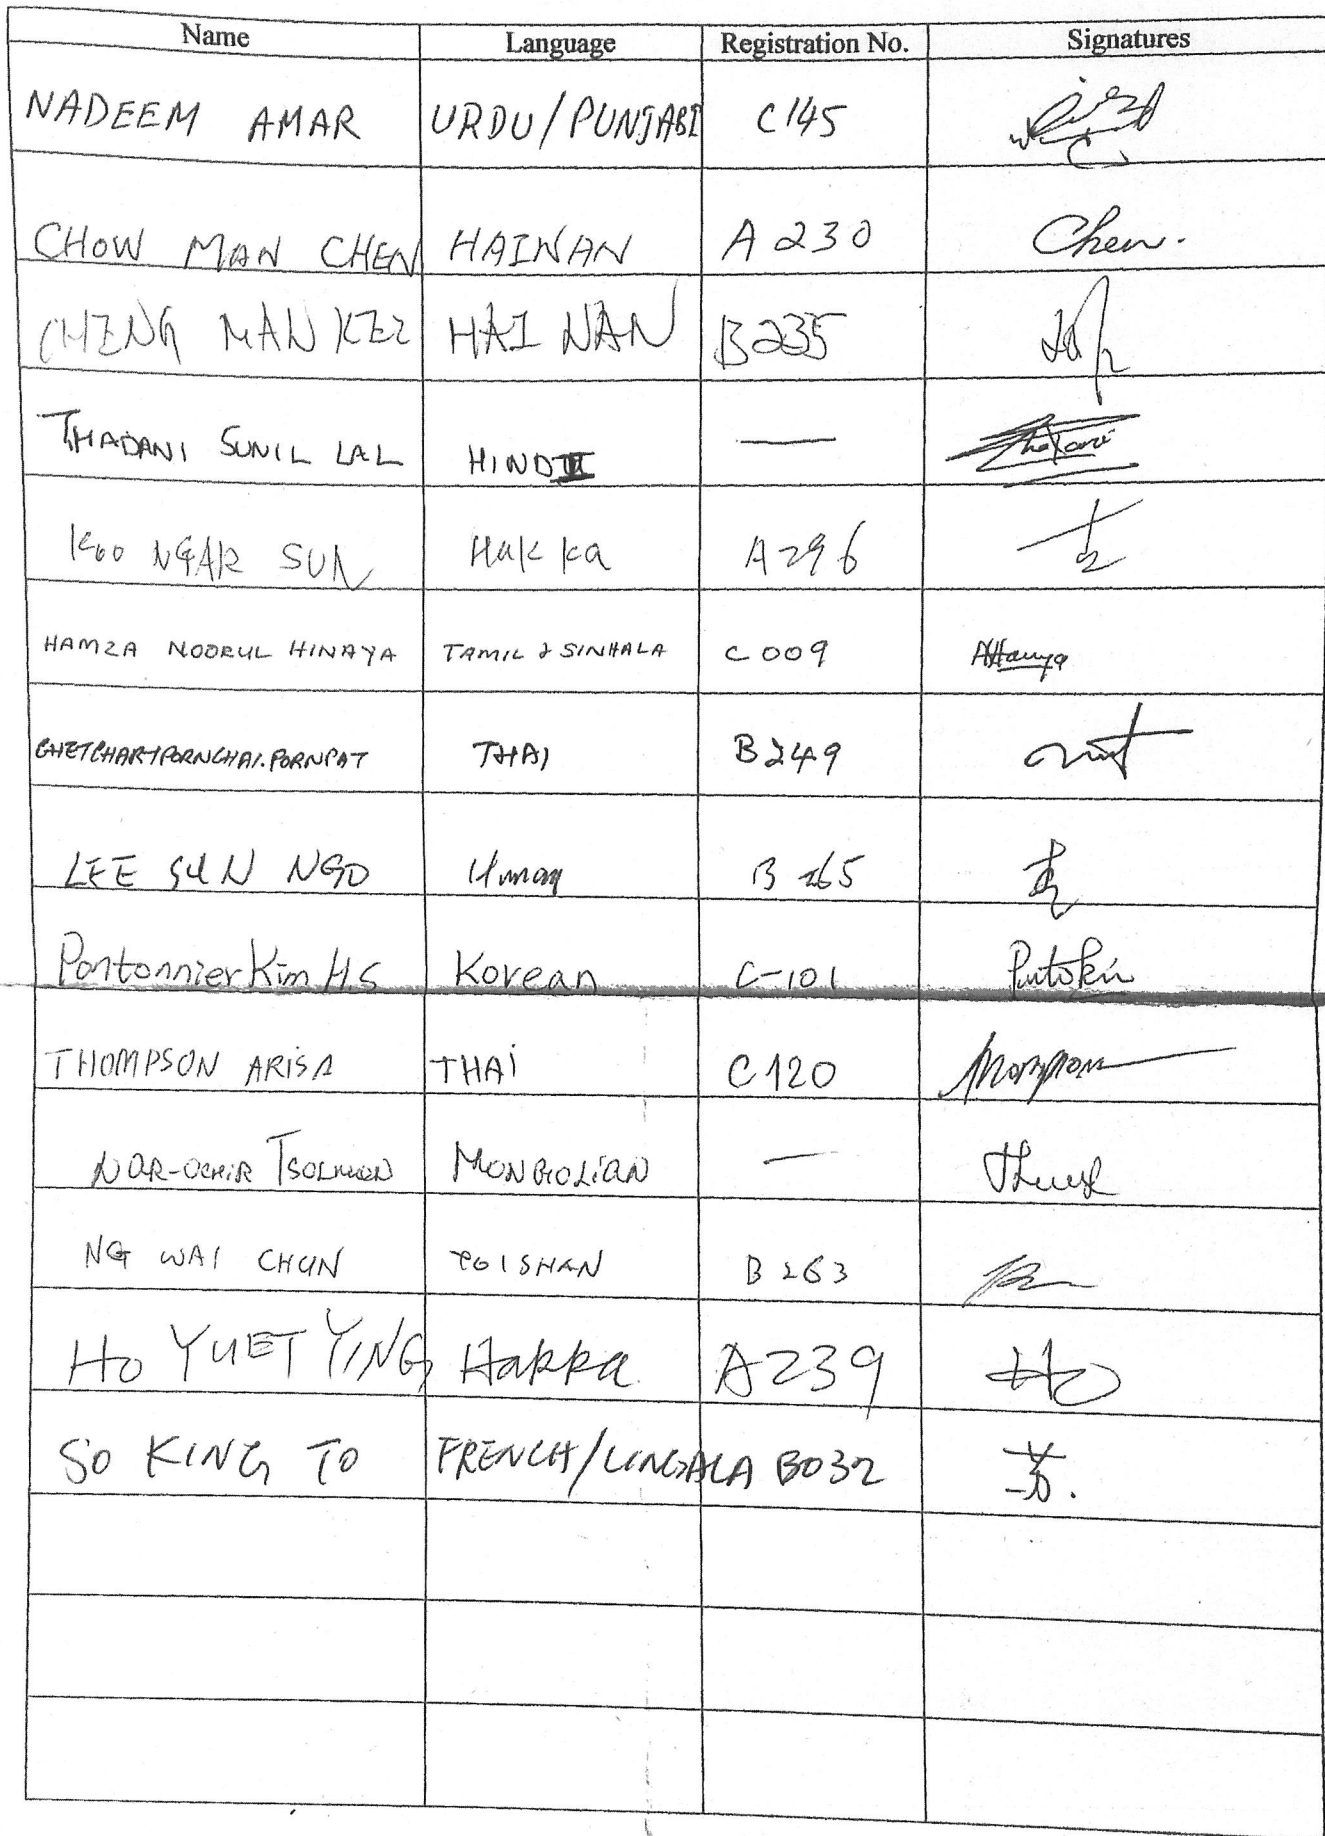 Name Language Registration No. Signatures
NADEEM AMAR URDU/PUNJABI C145
CHOW MAN CHEN HAINAN A230 Chen.
CHENG MAN KEE HAI NAN B235
THADANI SUNIL LAL HINDI —
KOO NGAR SUN Hakka A296
HAMZA NOORUL HINAYA TAMIL & SINHALA C009
CHETCHARTPORNCHAI.PORNPAT THAI B249
LEE SUN NGO B265
Pontonnier Kim H.S Korean C-101
THOMPSON ARISA THAI C120
NAR-OCHIR MONGOLIAN —
NG WAI CHUN TOISHAN B263
HO YUET YING Hakka A239 HO
SO KING TO FRENCH/LINGALA B032 苏.